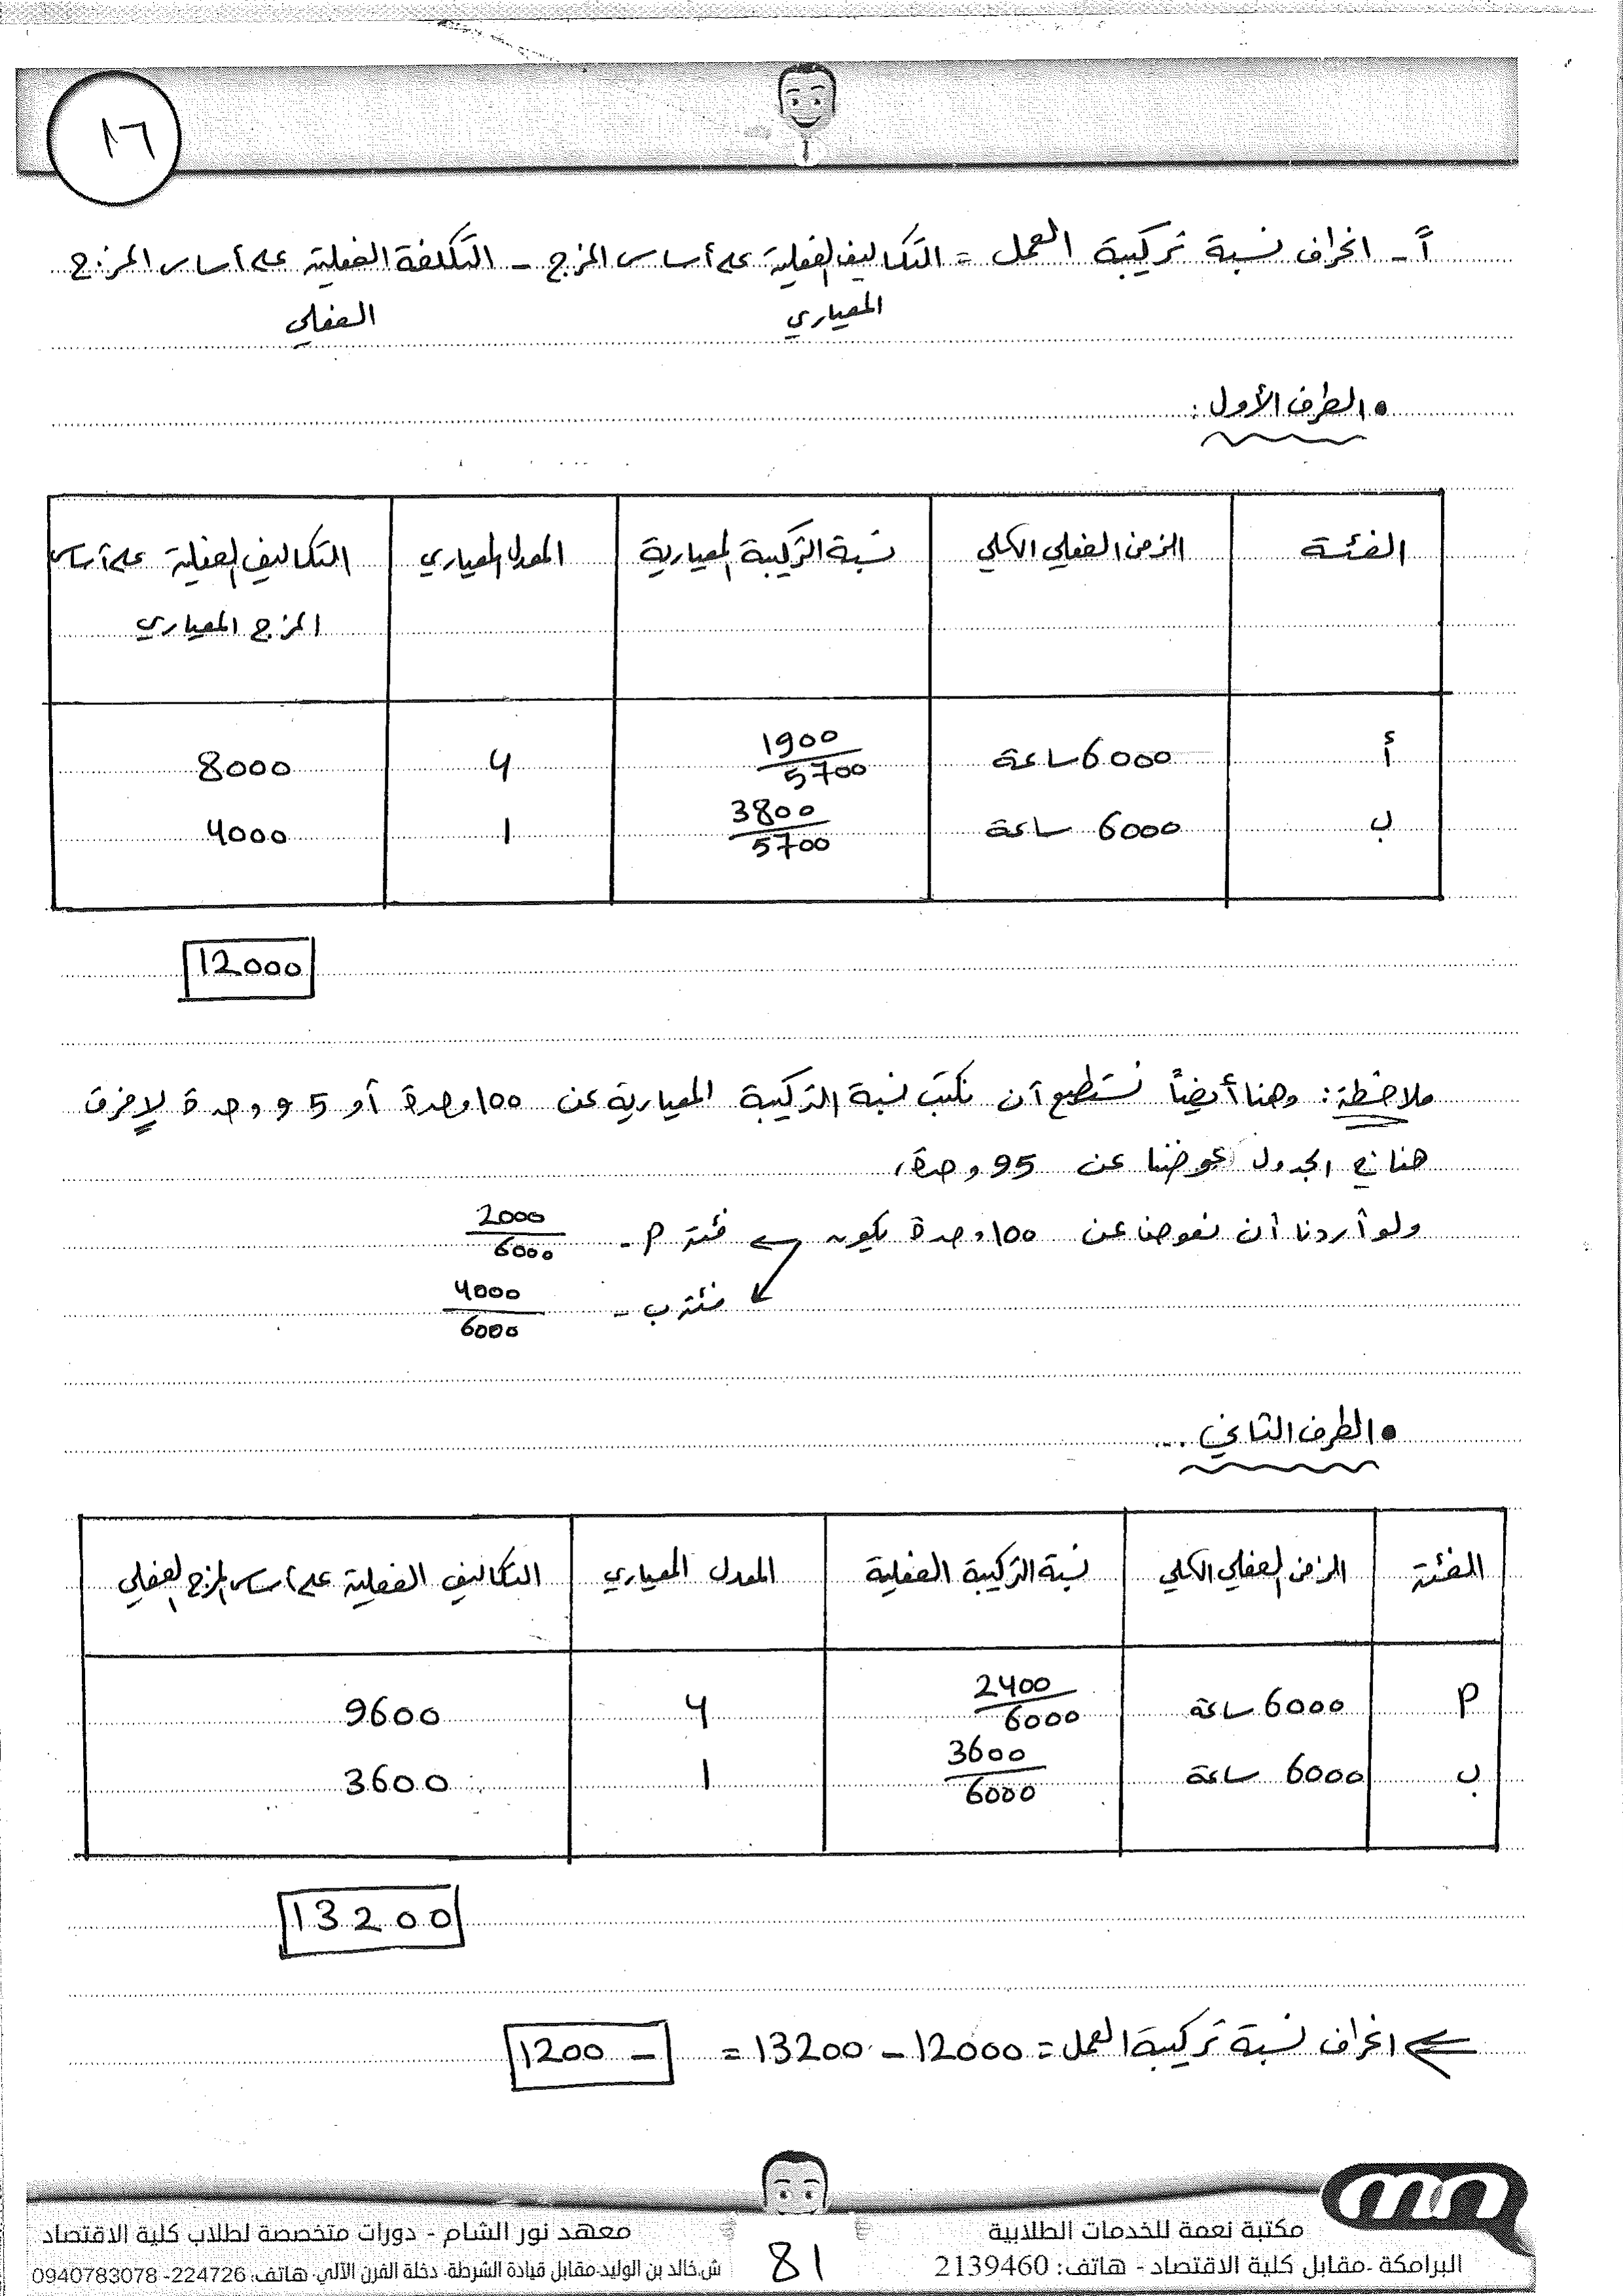 ١٦
أً - انحراف نسبة تركيبة العمل = التكاليف الفعلية على أساس المزج - التكلفة الفعلية على أساس المزج
المعياري
الفعلي
• الطرف الأول :
الفئة الزمن الفعلي الكلي نسبة التركيبة المعيارية المعدل المعياري التكاليف الفعلية على أساس
المزج المعياري
أ 6000 ساعة 1900/5700 4 8000
ب 6000 ساعة 3800/5700 1 4000
12000
ملاحظة : وهنا أيضاً نستطيع أن نكتب نسبة التركيبة المعيارية عن 100 وحدة أو 95 وحدة لا فرق
هنا في الجدول عوضنا عن 95 وحدة ،
ولو أردنا أن نعوض عن 100 وحدة يكون فئة أ - 2000/6000
فئة ب - 4000/6000
• الطرف الثاني ...
الفئة الزمن الفعلي الكلي نسبة التركيبة الفعلية المعدل المعياري التكاليف الفعلية على أساس المزج الفعلي
أ 6000 ساعة 2400/6000 4 9600
ب 6000 ساعة 3600/6000 1 3600
13200
انحراف نسبة تركيبة العمل = 12000 - 13200 = - 1200
مكتبة نعمة للخدمات الطلابية
معهد نور الشام - دورات متخصصة لطلاب كلية الاقتصاد
البرامكة -مقابل كلية الاقتصاد - هاتف: 2139460
81
ش.خالد بن الوليد-مقابل قيادة الشرطة- دخلة الفرن الآلي- هاتف: 224726- 0940783078